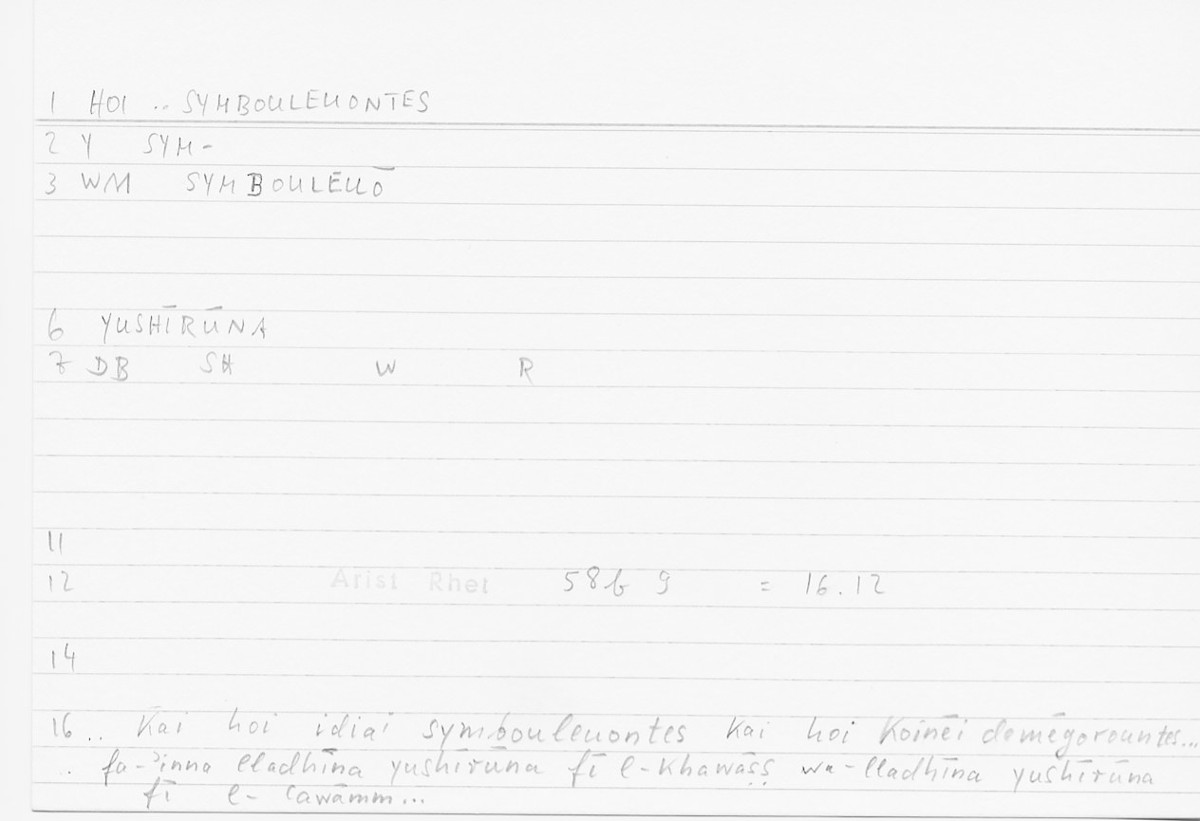 1 HOI .. SYMBOULEUONTES
2 Y SYM-
3 WM SYMBOULEUŌ
6 YUSHĪRŪNA
7 DB SH W R
11
12 Arist Rhet 58b 9 = 16.12
14
16 .. kai hoi idiai symbouleuontes kai hoi koinēi demēgorountes...
.. fa-ʾinna lladhīna yushīrūna fī l-khawāṣṣ wa-lladhīna yushīrūna
fī l-ʿawāmm...